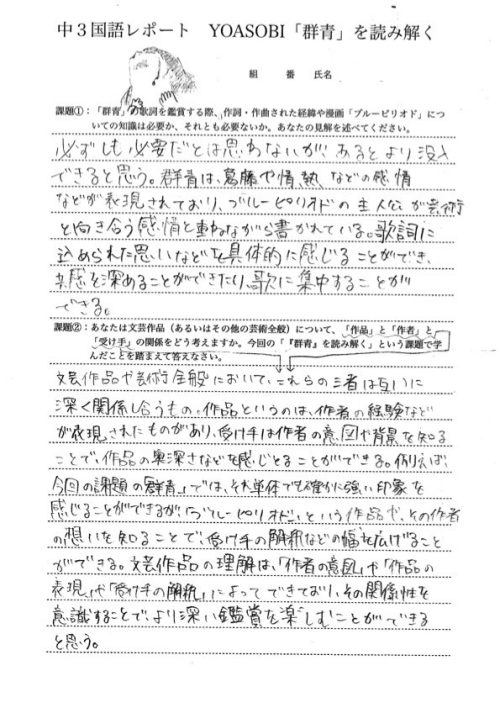 中３国語レポート　YOASOBI「群青」を読み解く
組　番　氏名
課題①：「群青」の歌詞を鑑賞する際、作詞・作曲された経緯や漫画「ブルーピリオド」につ
いての知識は必要か、それとも必要ないか。あなたの見解を述べてください。
必ずしも必要だとは思わないが、あるとより没入
できると思う。群青は、葛藤や情熱などの感情
などが表現されており、ブルーピリオドの主人公が芸術
と向き合う感情と重ねながら書かれている。歌詞に
込められた思いなどを具体的に感じることができ、
共感を深めることができたり、歌に集中することが
できる。
課題②：あなたは文芸作品（あるいはその他の芸術全般）について、「作品」と「作者」と、
「受け手」の関係をどう考えますか。今回の「『群青』を読み解く」という課題で学
んだことを踏まえて答えなさい。
文芸作品や芸術全般において、これらの三者は互いに
深く関係し合うもの。作品というのは、作者の経験など
が表現されたものがあり、受け手は作者の意図や背景を知る
ことで、作品の奥深さなどを感じとることができる。例えば、
今回の課題の「群青」では、それ単体でも確かに強い印象を
感じることができるが、「ブルーピリオド」という作品や、その作者
の想いを知ることで、受け手の解釈などの幅を広げること
ができる。文芸作品の理解は、「作者の意図」や「作品の
表現」や「受け手の解釈」によってできており、その関係性を
意識することで、より深い鑑賞を楽しむことができる
と思う。